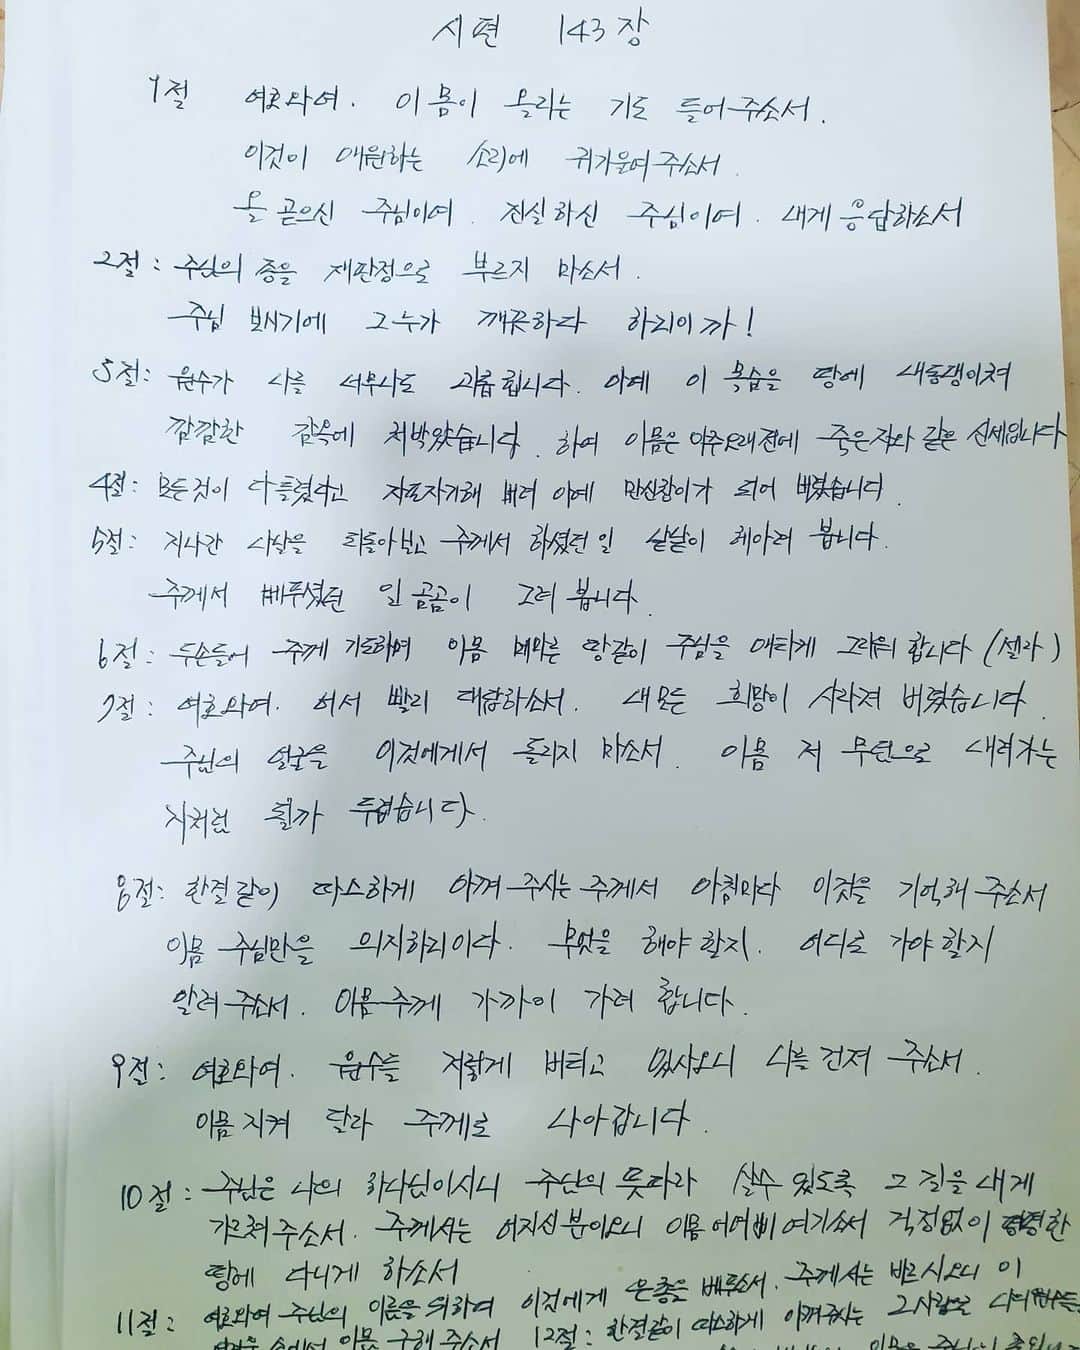 시편 143장
1절 여호와여. 이 몸이 올리는 기도 들어주소서.
이것이 애원하는 소리에 귀기울여주소서.
올곧으신 주님이여. 진실하신 주님이여. 내게 응답하소서
2절: 주님의 종을 재판정으로 부르지 마소서.
주님 보시기에 그누가 깨끗하다 하리이까!
3절: 원수가 나를 너무나도 괴롭힙니다. 아예 이 목숨을 땅에 내동댕이쳐
깜깜한 감옥에 처박았습니다. 하여 이몸은 아주오래전에 죽은자와 같은 신세입니다
4절: 모든것이 다 틀렸다고 자포자기해 버려 아예 만신창이가 되어 버렸습니다.
5절: 지나간 나날을 되돌아보고 주께서 하셨던 일 낱낱이 헤아려 봅니다.
주께서 베푸셨던 일 곰곰이 그려 봅니다.
6절: 두손들어 주께 기도하며 이몸 메마른 땅같이 주님을 애타게 그리워 합니다 (셀라)
7절: 여호와여. 어서 빨리 대답하소서. 내모든 희망이 사라져 버렸습니다.
주님의 얼굴을 이것에게서 돌리지 마소서. 이몸 저 무덤으로 내려가는
자처럼 될까 두렵습니다.
8절: 한결같이 따스하게 아껴 주시는 주께서 아침마다 이것을 기억해 주소서
이몸 주님만을 의지하리이다. 무엇을 해야 할지. 어디로 가야 할지
알려 주소서. 이몸 주께 가까이 가려 합니다.
9절: 여호와여. 원수들 저렇게 버티고 있사오니 나를 건져 주소서.
이몸 지켜 달라 주께로 나아갑니다.
10절: 주님은 나의 하나님이시니 주님의 뜻따라 살수 있도록 그 길을 내게
가르쳐 주소서. 주께서는 어지신 분이오니 이몸 어여삐 여기소서 걱정없이 평평한
땅에 다니게 하소서
11절: 여호와여 주님의 이름을 위하여 이것에게 은총을 베푸소서. 주께서는 바르시오니 이
이몸 구해 주소서 12절: 한결같이 따스하게 아껴주시는 그사랑으로 나의 원수들